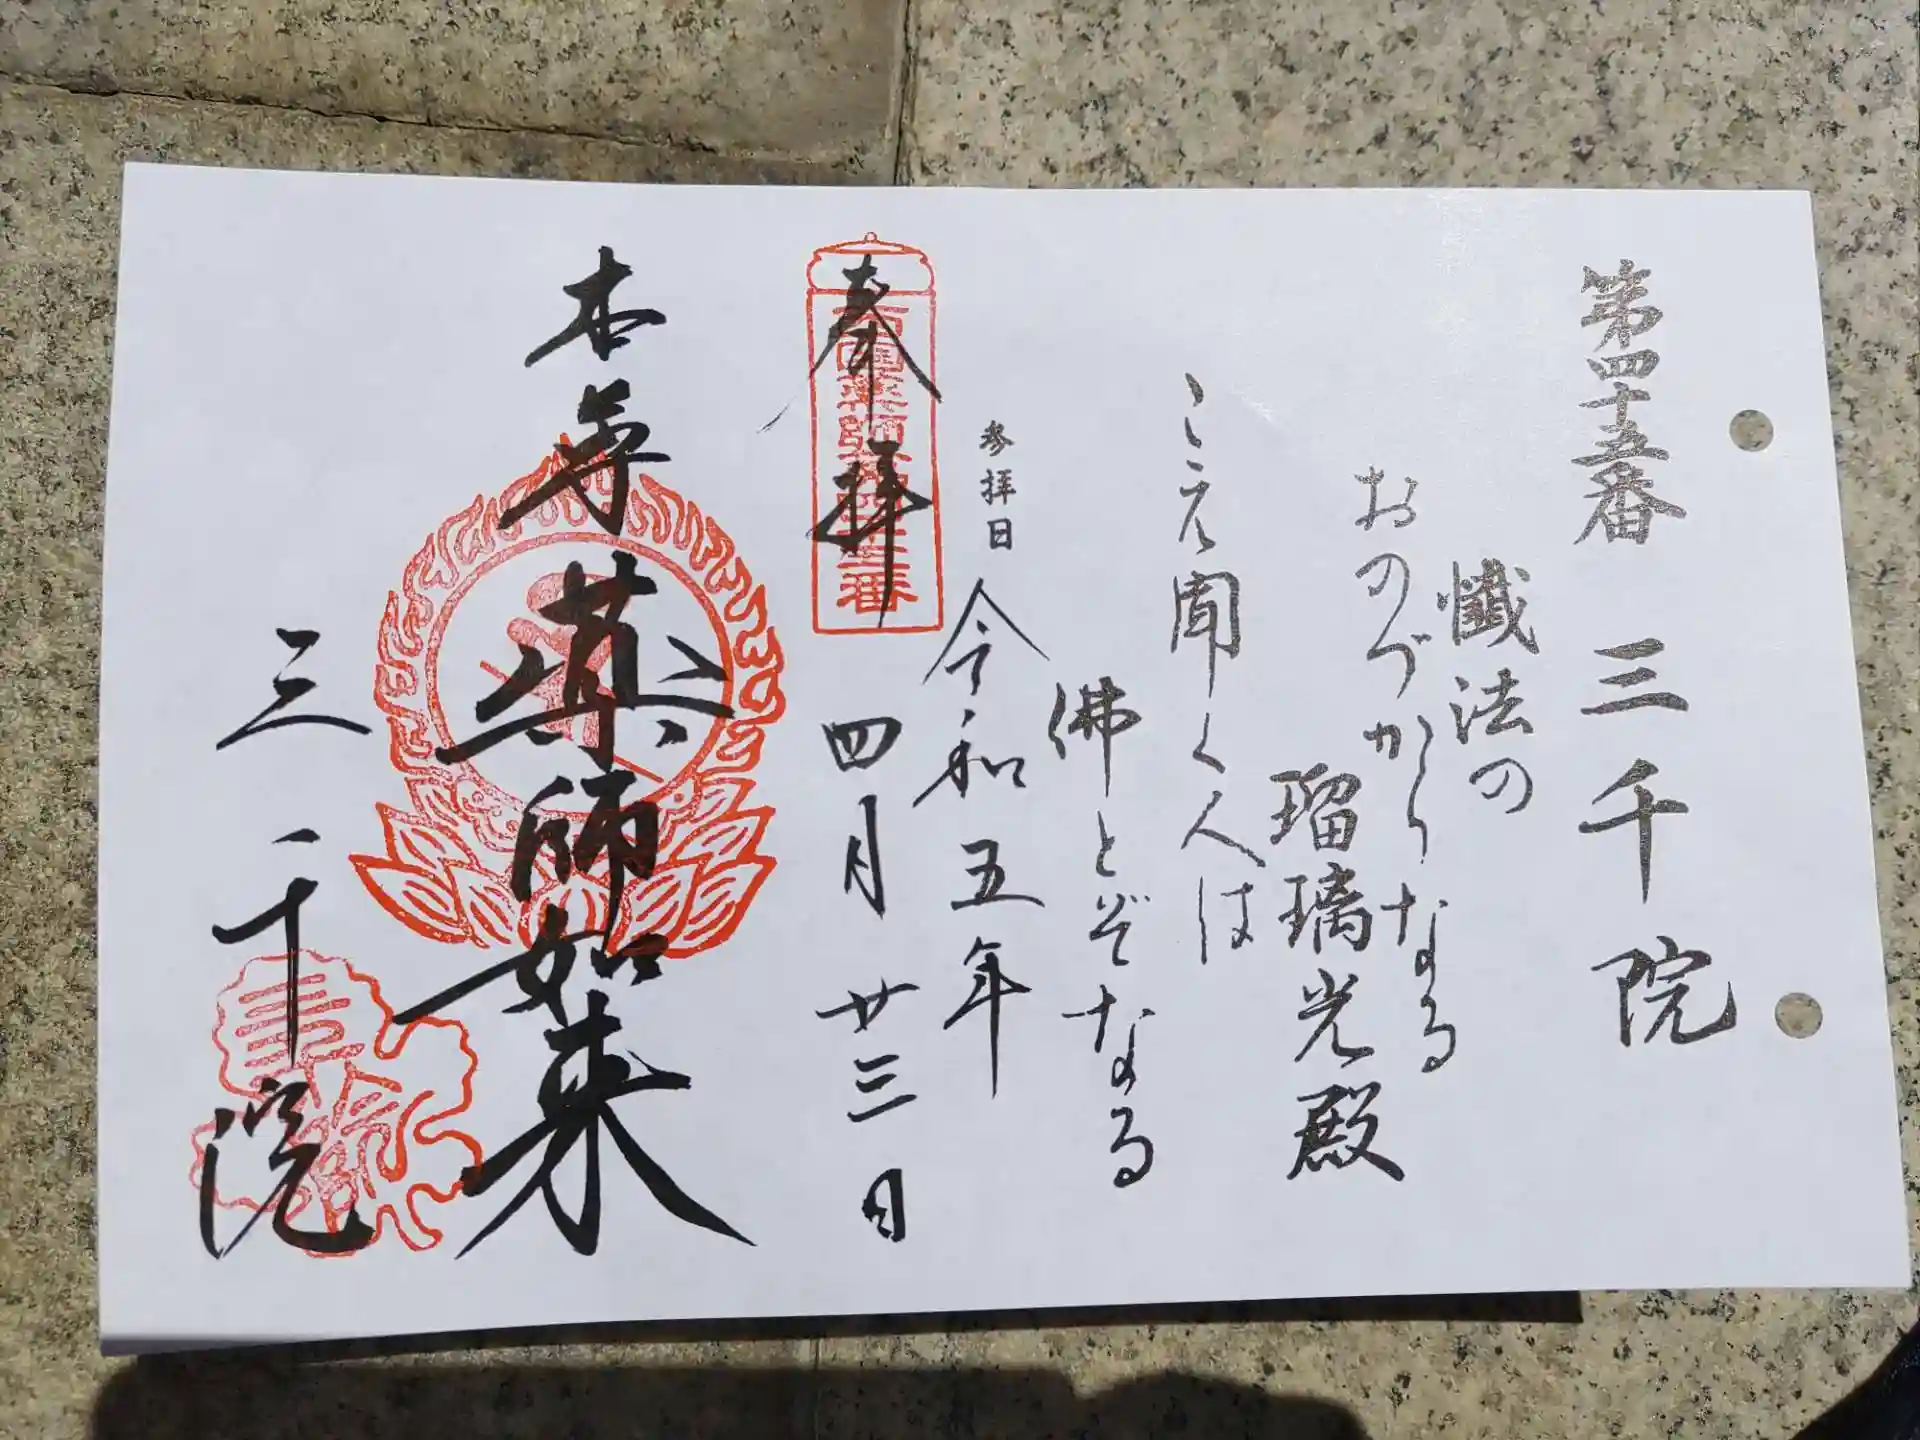 第四十五番 三千院
懺法の
おのづからなる
瑠璃光殿
こえ聞く人は
佛とぞなる
参拝日 令和五年
四月廿三日
奉拝
西国薬師第四十五番
本尊 薬師如来
三千院